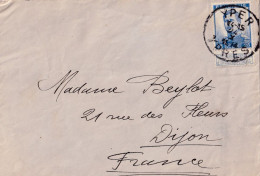 YPER
YPRES
Madame Beylot
21 rue des Fleurs
Dijon
France